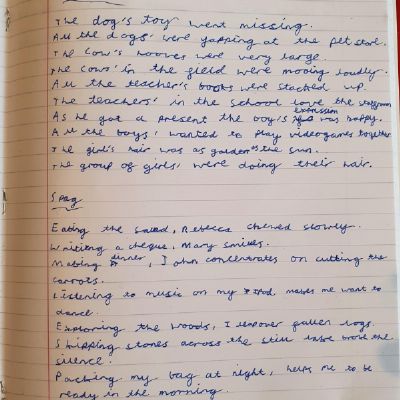 The dog's toy went missing.
All the dogs' were yapping at the pet store.
The cow's hooves were very large.
The cows' in the gleid were mooing loudly.
All the teacher's books were stacked up.
The teachers' in the school love the
As he got a present the boy's expression was happy.
All the boys' wanted to play videogames together
The girl's hair was as golden as the sun.
The group of girls' were doing their hair.
Spag
Eating the salad, Rebecca chewed slowly.
Writing a cheque, Mary smiles.
Making dinner, John concentrates on cutting the
carrots.
Listening to music on my Ipod, makes me want to
dance.
Exploring the woods, I over fallen logs.
Skipping stones across the still lake broke the
silence.
Packing my bag at night, helps me to be
ready in the morning.